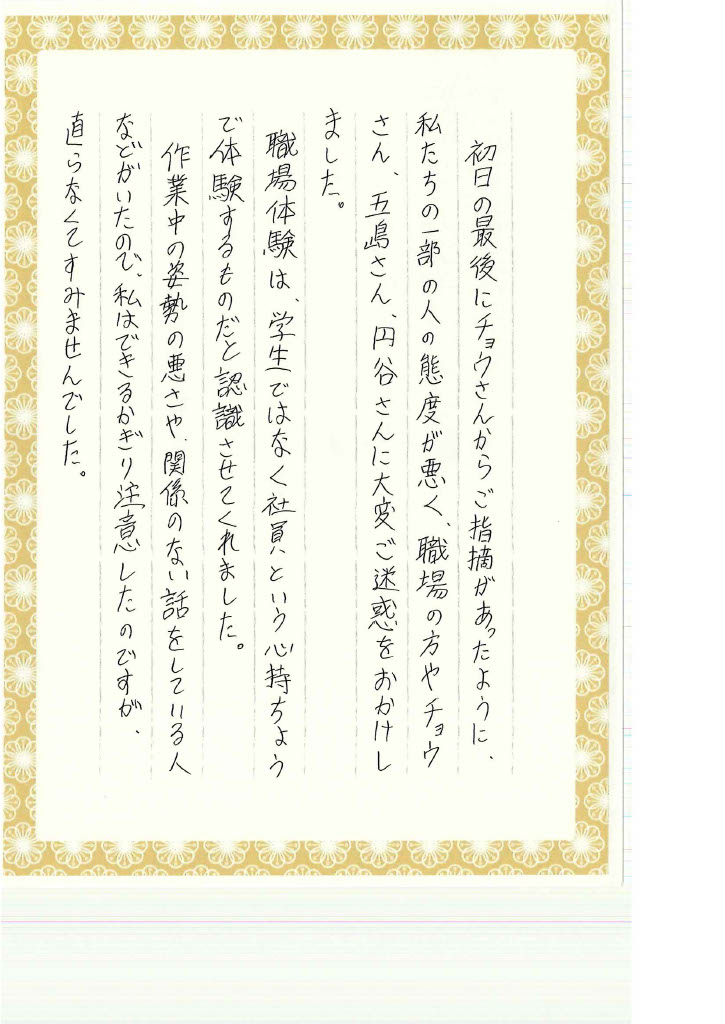 初日の最後にチョウさんからご指摘があったように、
私たちの一部の人の態度が悪く、職場の方やチョウ
さん、五島さん、円谷さんに大変ご迷惑をおかけし
ました。
職場体験は、学生ではなく社員という心持ちよう
で体験するものだと認識させてくれました。
作業中の姿勢の悪さや、関係のない話をしている人
などがいたので、私はできるかぎり注意したのですが、
直らなくてすみませんでした。